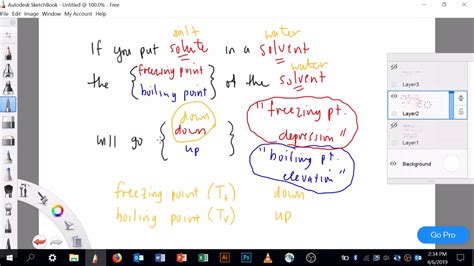 Autodesk SketchBook - Untitled @ 100.0% - Free
File Edit Image Window My Account Help
salt water
If you put solute in a solvent
water
the { freezing point of the solvent
boiling point }
down
will go { down } "freezing pt. depression"
up "boiling pt. elevation"
freezing point (Tf) down
boiling point (Tv) up
Layer3
Layer2
Layer1
Go Pro
2:34 PM
4/6/2019